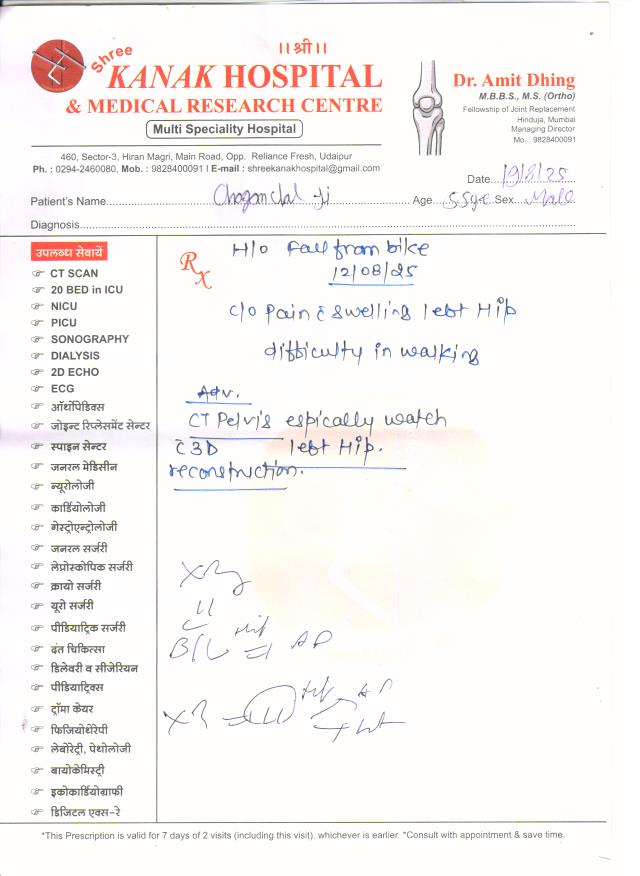 ।।श्री।।
Shree
KANAK HOSPITAL
& MEDICAL RESEARCH CENTRE
Multi Speciality Hospital
Dr. Amit Dhing
M.B.B.S., M.S. (Ortho)
Fellowship of Joint Replacement
Hinduja, Mumbai
Managing Director
Mo. : 9828400091
460, Sector-3, Hiran Magri, Main Road, Opp. Reliance Fresh, Udaipur
Ph. : 0294-2460080, Mob. : 9828400091 I E-mail : shreekanakhospital@gmail.com
Date 19/8/25
Patient's Name Chaganlal Ji Age 55yr Sex Male
Diagnosis
उपलब्ध सेवायें
CT SCAN
20 BED in ICU
NICU
PICU
SONOGRAPHY
DIALYSIS
2D ECHO
ECG
ऑर्थोपेडिक्स
जोइन्ट रिप्लेसमेंट सेन्टर
स्पाइन सेन्टर
जनरल मेडिसीन
न्यूरोलोजी
कार्डियोलोजी
गेस्ट्रोएन्ट्रोलोजी
जनरल सर्जरी
लेप्रोस्कोपिक सर्जरी
क्रायो सर्जरी
यूरो सर्जरी
पीडियाट्रिक सर्जरी
दंत चिकित्सा
डिलेवरी व सीजेरियन
पीडियाट्रिक्स
ट्रॉमा केयर
फिजियोथेरेपी
लेबोरेट्री, पेथोलोजी
बायोकेमिस्ट्री
इकोकार्डियोग्राफी
डिजिटल एक्स-रे
Rx
H/o Fall from bike
12/08/25
c/o Pain c̄ swelling left Hip
difficulty in walking
Adv.
CT Pelvis espically watch
c̄ 3D left Hip.
reconstruction.
B/L Hip AP
Hip AP
*This Prescription is valid for 7 days of 2 visits (including this visit). whichever is earlier. *Consult with appointment & save time.